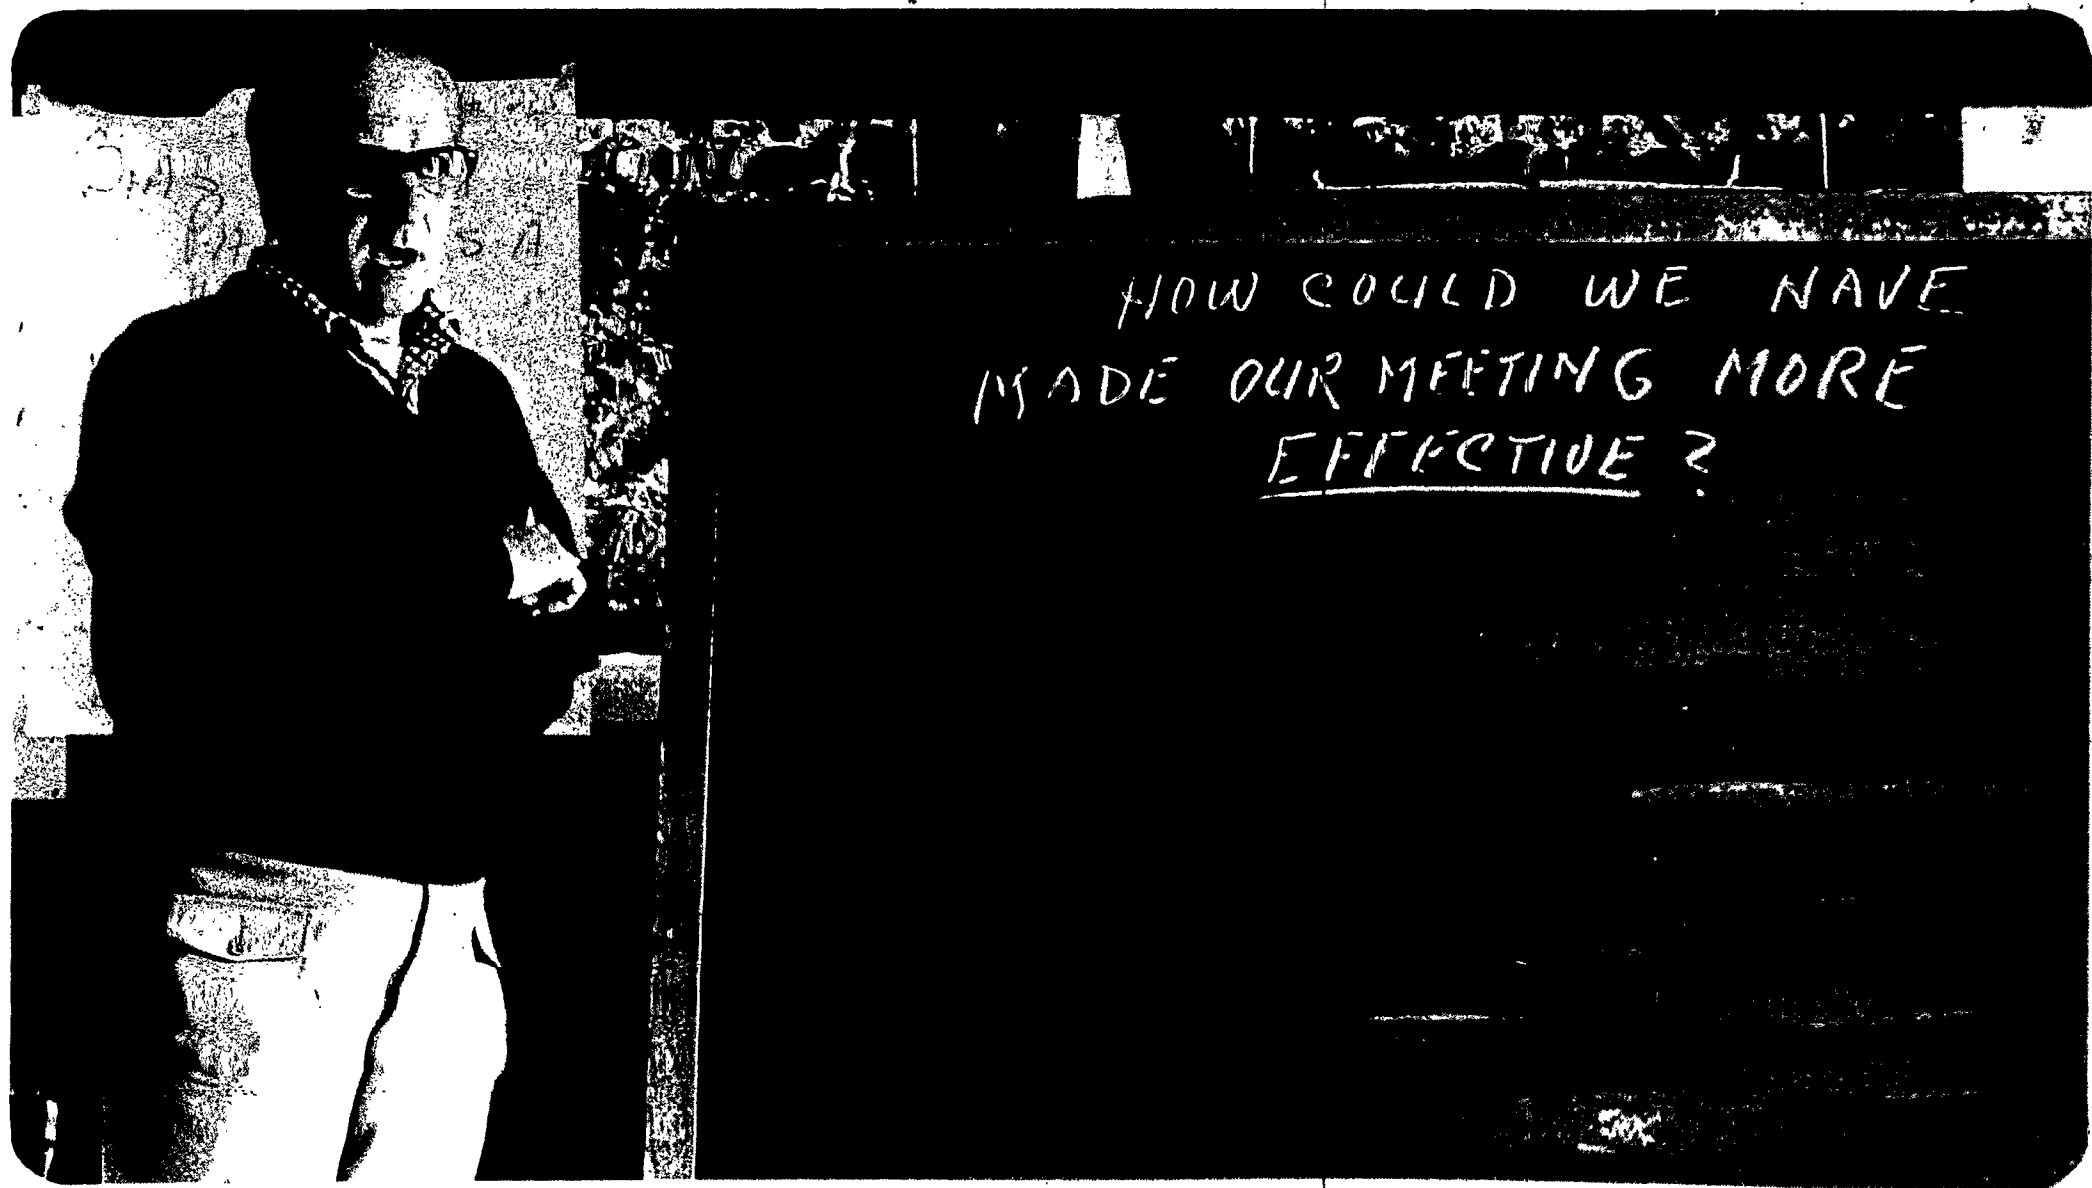 HOW COULD WE HAVE
MADE OUR MEETING MORE
EFFECTIVE?